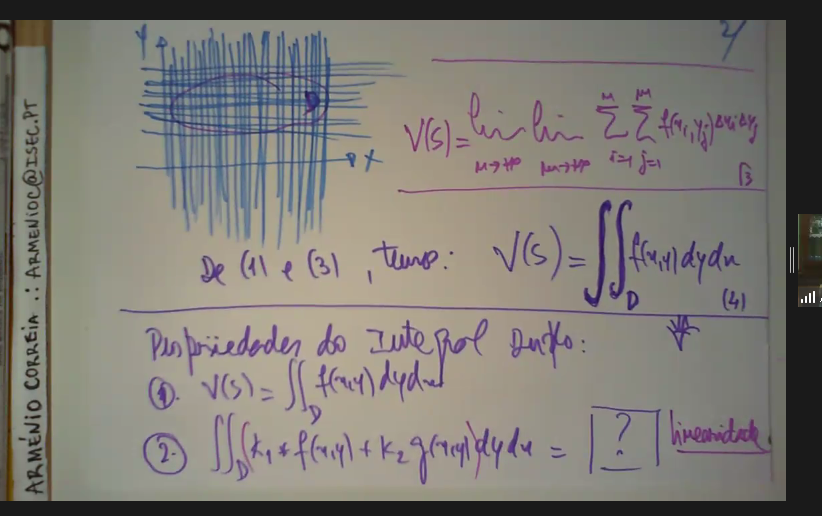 ARMÉNIO CORREIA .: ARMENIOC@ISEC.PT
2/
Y
D
X
V(S) = lim n→+∞ lim m→+∞ ∑ i=1 n ∑ j=1 m f(xi, yj) Δxi Δyj
(3
De (1) e (3), temos: V(S) = ∬D f(x,y) dy dx
(4)
Propriedades do Integral Duplo:
1. V(S) = ∬D f(x,y) dy dx
2. ∬D (k1 * f(x,y) + k2 g(x,y)) dy dx = ? linearidade